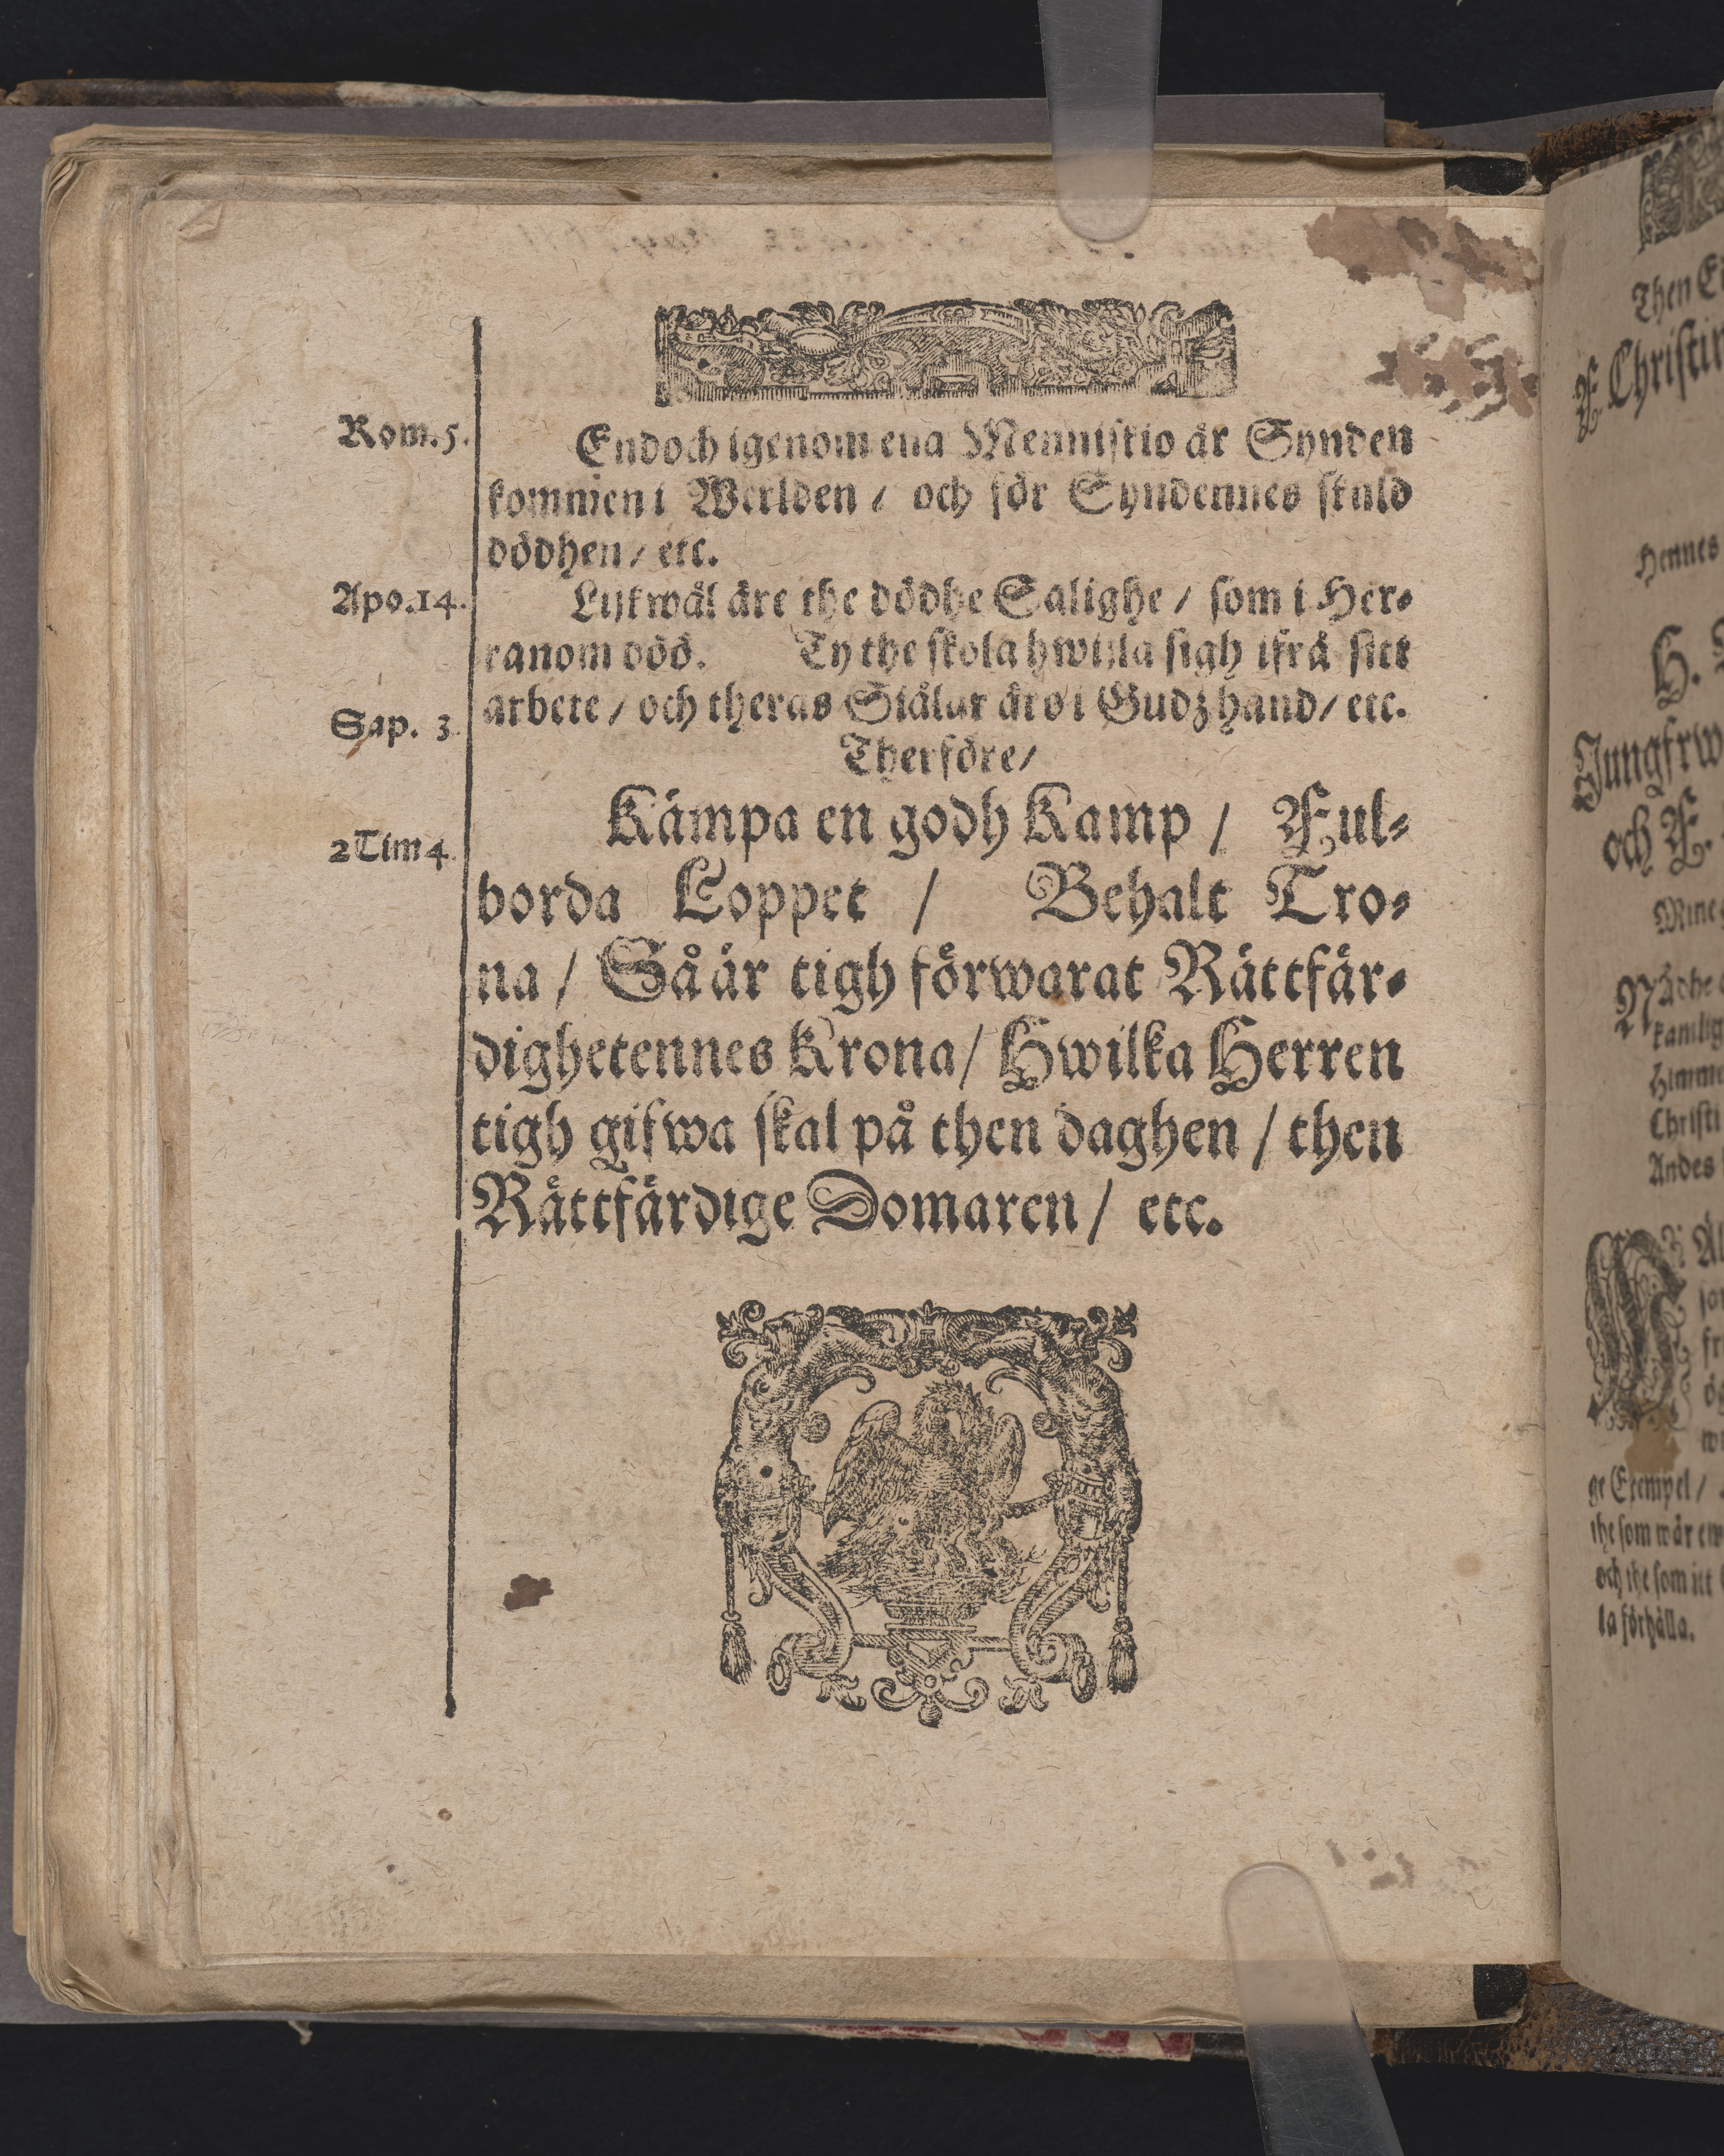 Rom.5.
Endoch igenom ena Menniskio är Synden
kommen i Werlden / och för Syndennes skuld
dödhen / etc.
Apo.14.
Lijkwäl äre the dödhe Salighe / som i Her-
ranom döö. Ty the skola hwijla sigh ifrå sitt
Sap. 3.
arbete / och theras Siälar äro i Gudz hand / etc.
Therföre /
Kämpa en godh Kamp / Ful-
2 Tim 4.
borda Loppet / Behalt Tro-
na / Så är tigh förwarat Rättfär-
dighetennes Krona / Hwilka Herren
tigh gifwa skal på then daghen / then
Rättfärdige Domaren / etc.
Then
Christin
Hennes
H.
Jungfrw
och F.
Mine
Nådhe
Himme
Christi
Andes
ge Exempel /
the som wår
och the som itt
la förhålla.